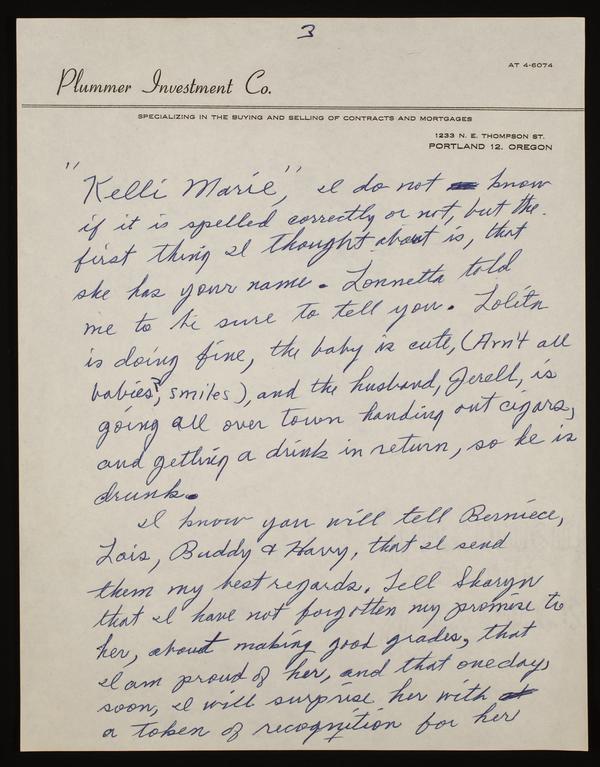 3
AT 4-6074
Plummer Investment Co.
SPECIALIZING IN THE BUYING AND SELLING OF CONTRACTS AND MORTGAGES
1233 N. E. THOMPSON ST.
PORTLAND 12, OREGON
"Kelli Marié", I do not know
if it is spelled correctly or not, but the
first thing I thought about is, that
she has your name. Lonnetta told
me to be sure to tell you. Lolita
is doing fine, the baby is cute, (Arn't all
babies?, smiles), and the husband, Jerell, is
going all over town handing out cigars,
and getting a drink in return, so he is
drunk.
I know you will tell Berniece,
Lois, Buddy & Harry, that I send
them my best regards. Tell Sharyn
that I have not forgotten my promise to
her, about making good grades, that
I am proud of her, and that one day,
soon, I will surprise her with
a token of recognition for her